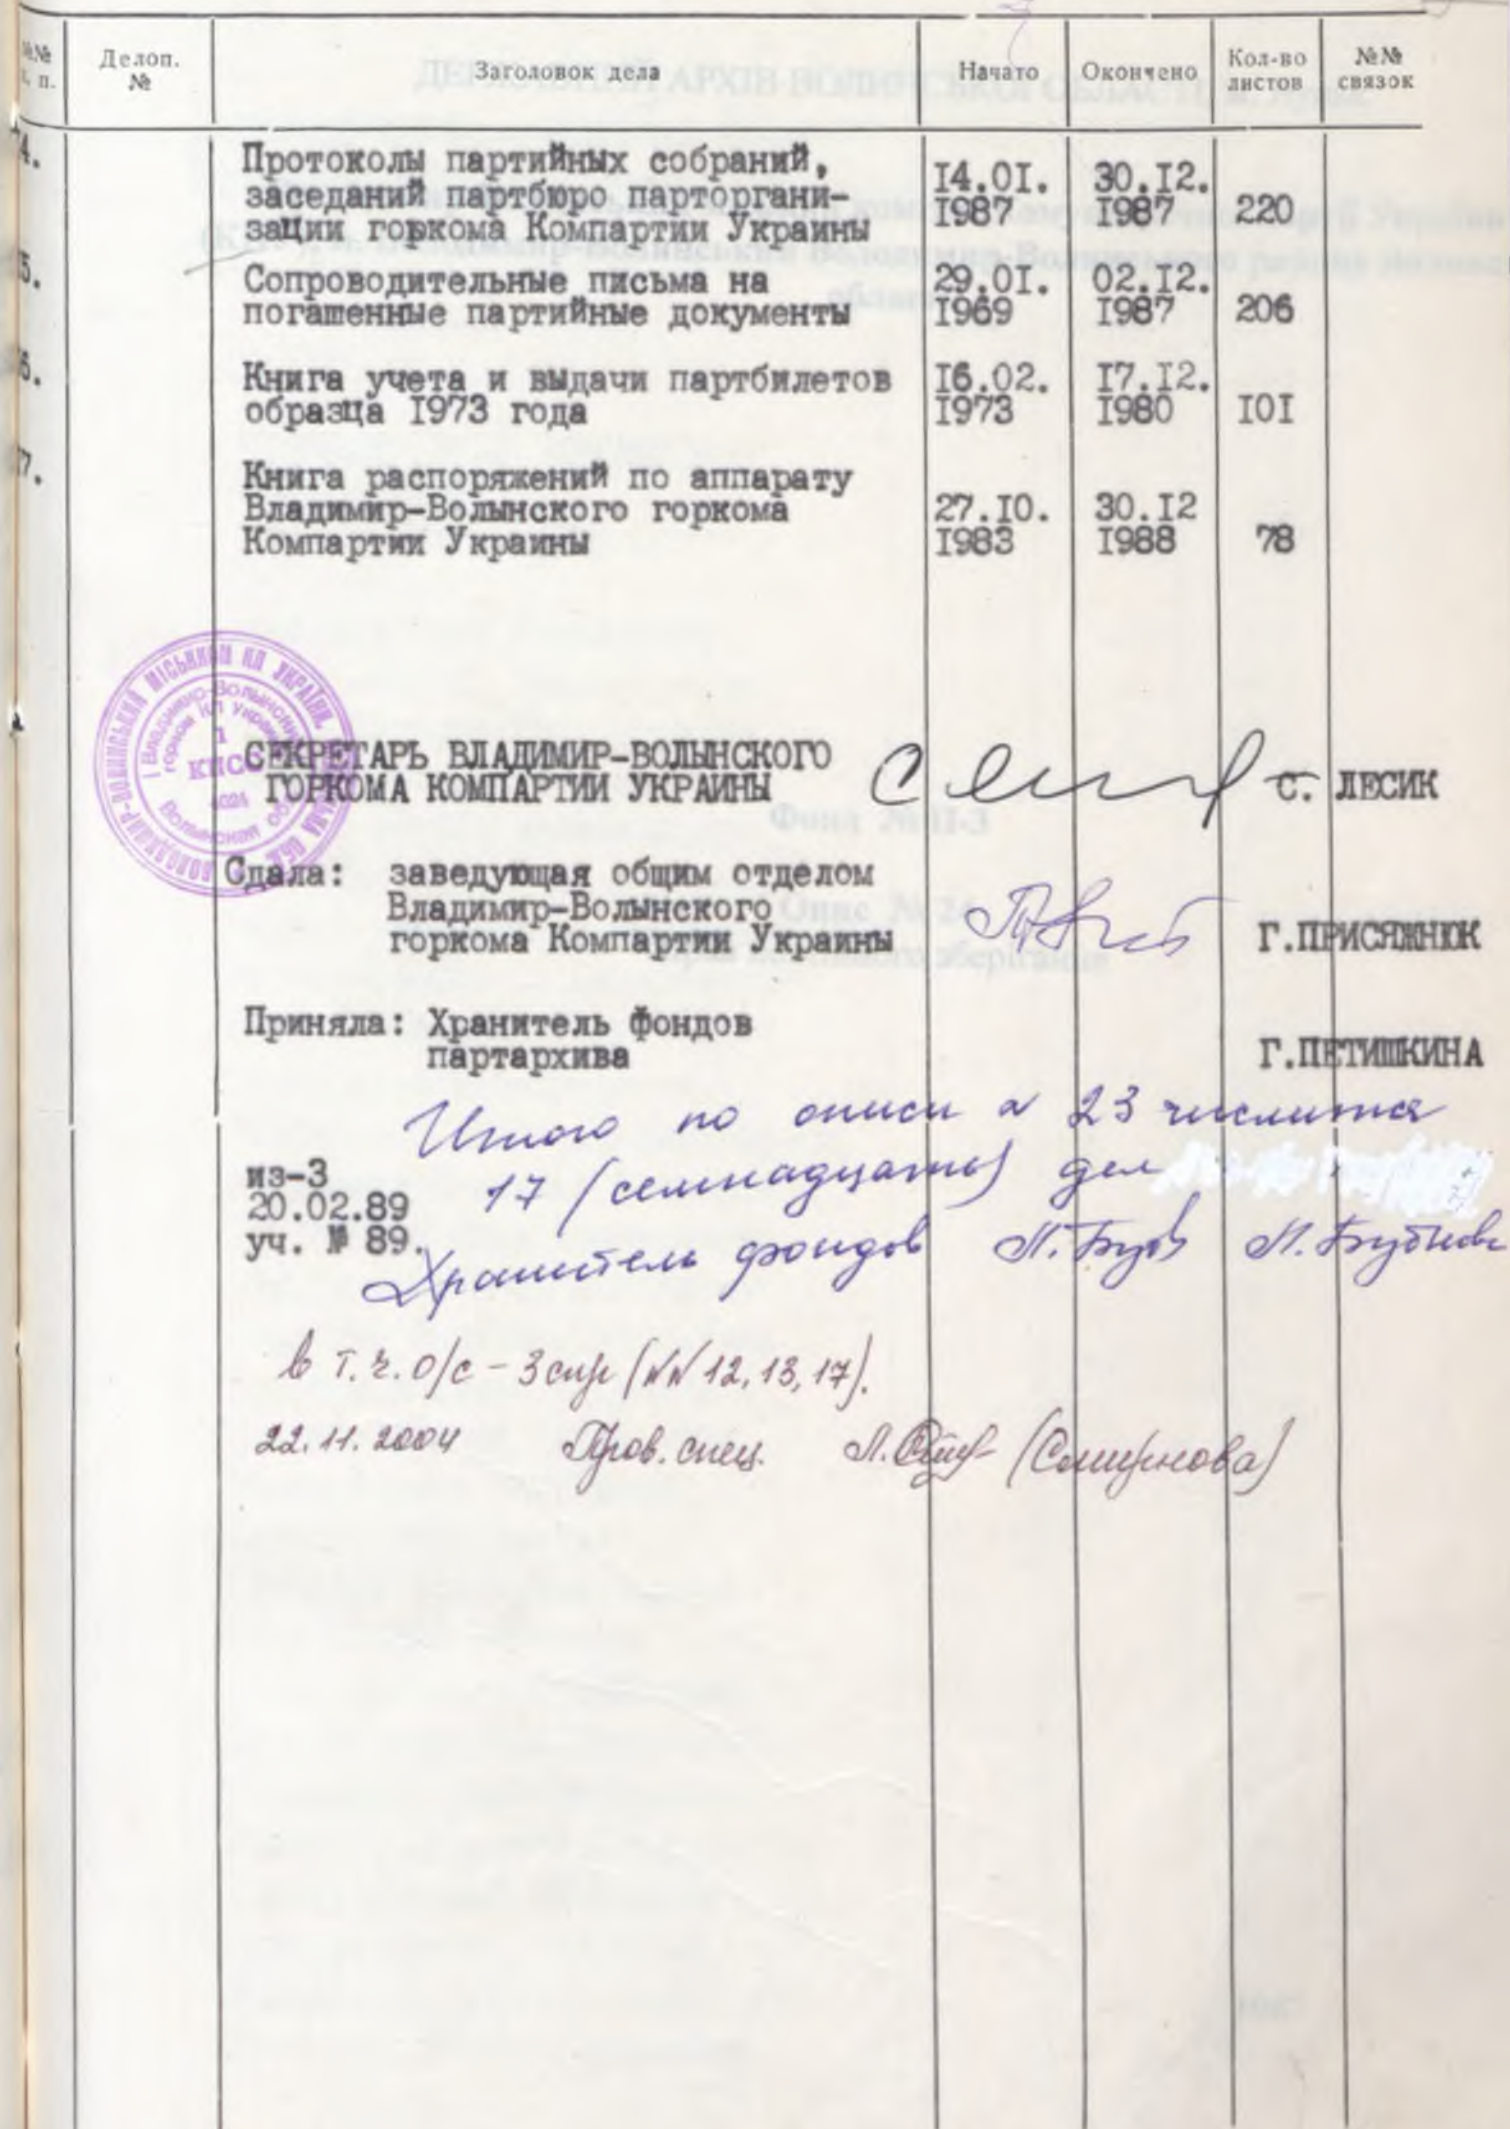 №№ п. п.
Делоп. №
Заголовок дела
Начато
Окончено
Кол-во листов
№№ связок
4.
Протоколы партийных собраний,
заседаний партбюро парторгани-
зации горкома Компартии Украины
14.01.
1987
30.12.
1987
220
5.
Сопроводительные письма на
погашенные партийные документы
29.01.
1969
02.12.
1987
206
6.
Книга учета и выдачи партбилетов
образца 1973 года
16.02.
1973
17.12.
1980
101
7.
Книга распоряжений по аппарату
Владимир-Волынского горкома
Компартии Украины
27.10.
1983
30.12
1988
78
СЕКРЕТАРЬ ВЛАДИМИР-ВОЛЫНСКОГО
ГОРКОМА КОМПАРТИИ УКРАИНЫ
С. ЛЕСИК
Сдала: заведующая общим отделом
Владимир-Волынского
горкома Компартии Украины
Г.ПРИСЯЖНЮК
Приняла: Хранитель фондов
партархива
Г.ПЕТИШКИНА
Итого по описи № 23 числится
17 (семнадцать) дел
из-3
20.02.89
уч. № 89.
Хранитель фондов
в т.ч. о/с - 3 спр (№№ 12, 13, 17).
22.11.2004 Пров. спец. (Смирнова)